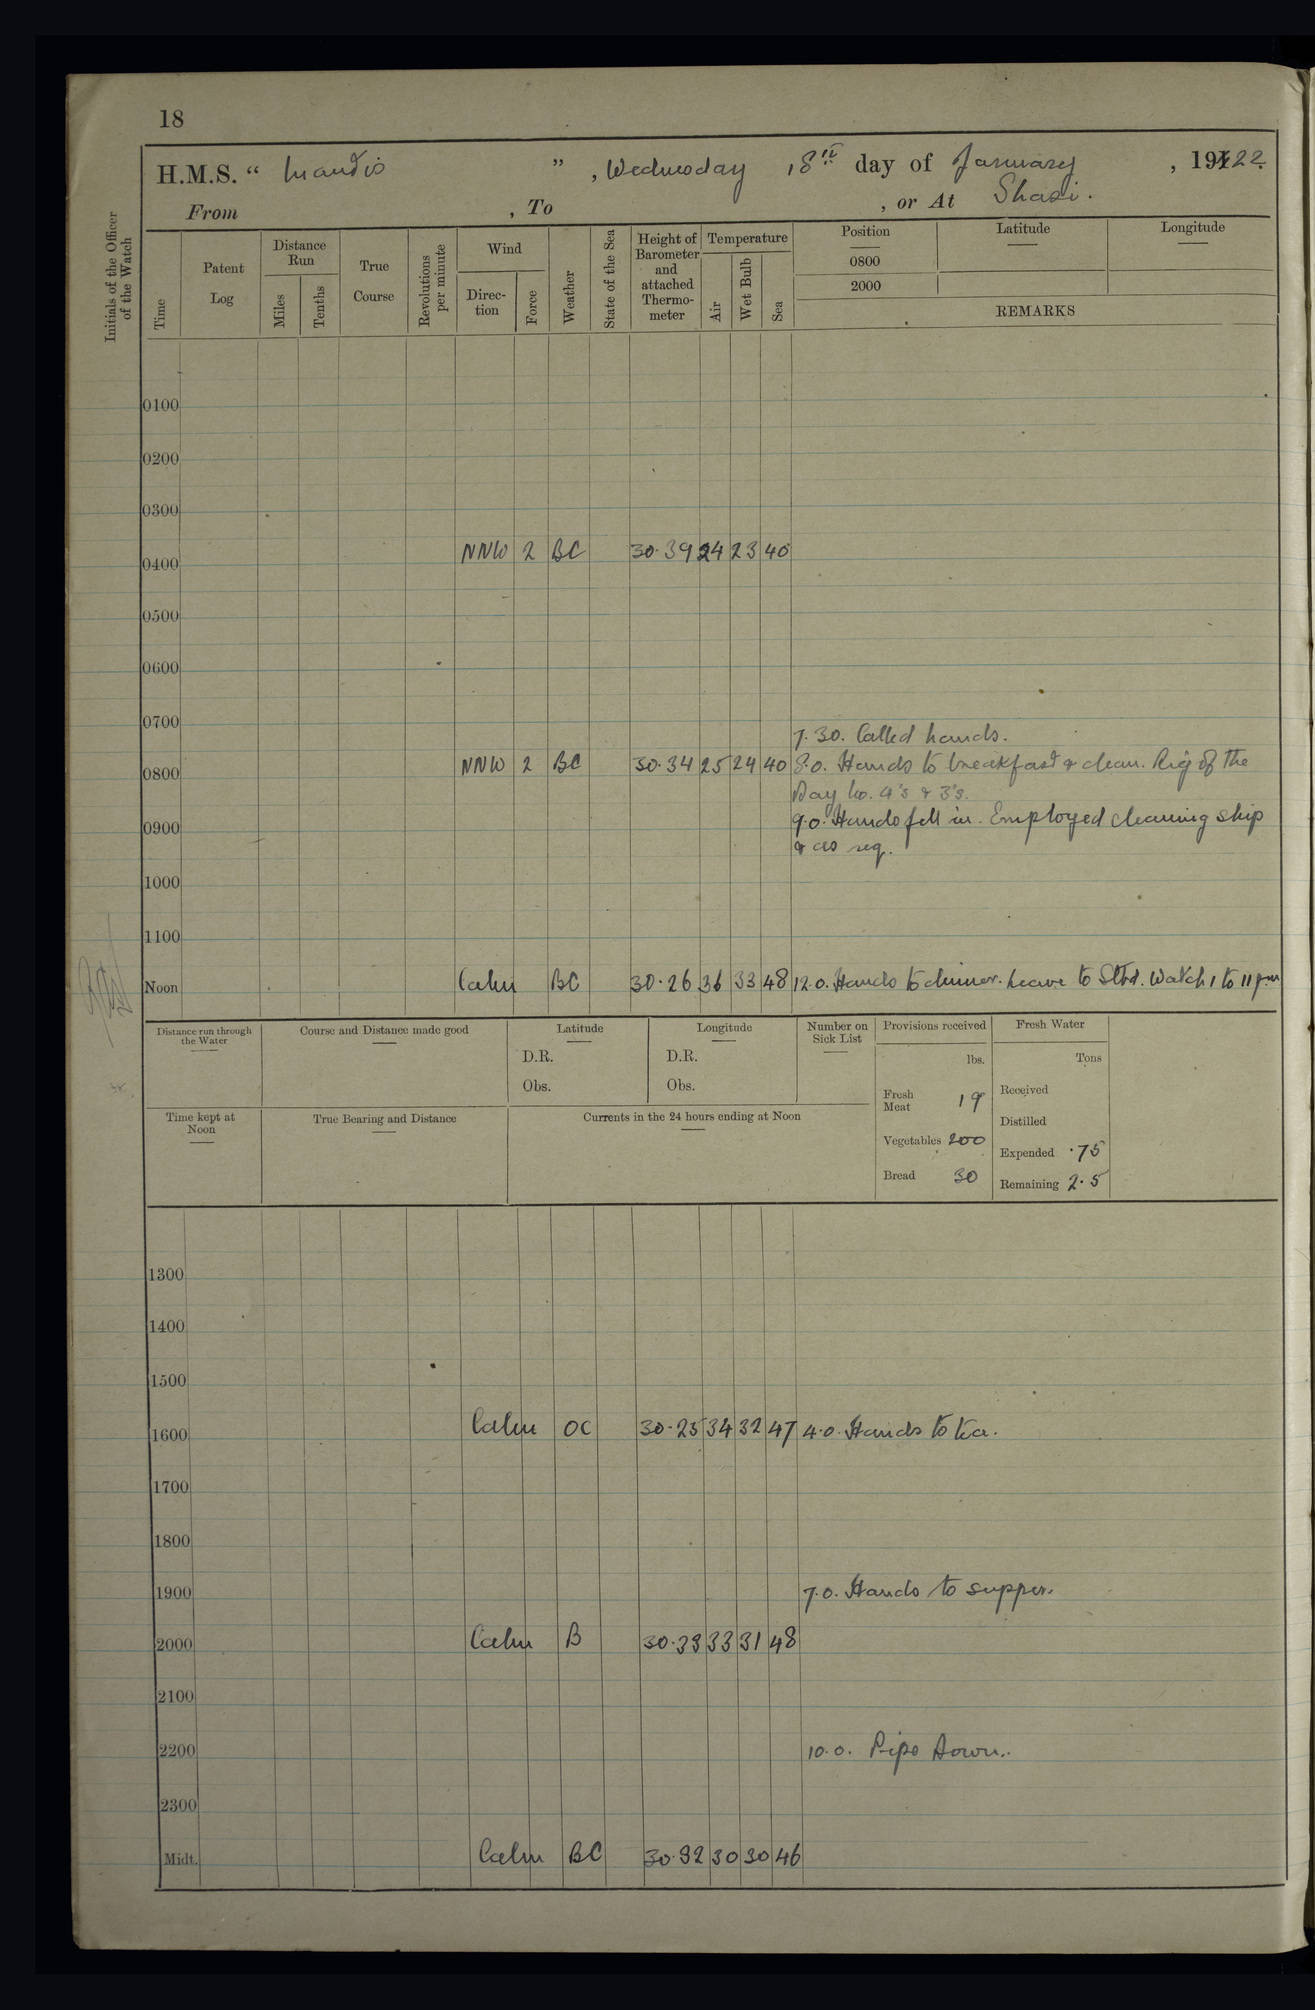 18
H.M.S. “ Mantis ” , Wednesday 18th day of January , 1922.
From , To , or At Shasi.
Initials of the Officer of the Watch
Time
Patent Log
Distance Run
Miles
Tenths
True Course
Revolutions per minute
Wind
Direc-tion
Force
Weather
State of the Sea
Height of Barometer and attached Thermo-meter
Temperature
Air
Wet Bulb
Sea
Position
0800
2000
Latitude
Longitude
REMARKS
0100
0200
0300
0400 NNW 2 BC 30.39 24 23 40
0500
0600
0700
7.30. Called hands.
0800 NNW 2 BC 30.34 25 24 40 8.0. Hands to breakfast & clean. Rig of the
Day No. 4's & 3's.
0900 9.0. Hands fell in. Employed cleaning ship
& as req.
1000
1100
Noon Calm BC 30.26 36 33 48 12.0. Hands to dinner. Leave to Stbd. Watch 1 to 11 p.m
Distance run through the Water
Course and Distance made good
Latitude
D.R.
Obs.
Longitude
D.R.
Obs.
Number on Sick List
Provisions received
lbs.
Fresh Meat 19
Vegetables 200
Bread 30
Fresh Water
Tons
Received
Distilled
Expended .75
Remaining 2.5
Time kept at Noon
True Bearing and Distance
Currents in the 24 hours ending at Noon
1300
1400
1500
1600 Calm OC 30.25 34 32 47 4.0. Hands to tea.
1700
1800
1900 7.0. Hands to supper.
2000 Calm B 33 31 48
2100
2200 10.0. Pipe Down.
2300
Midt. Calm BC 30.32 30 30 46